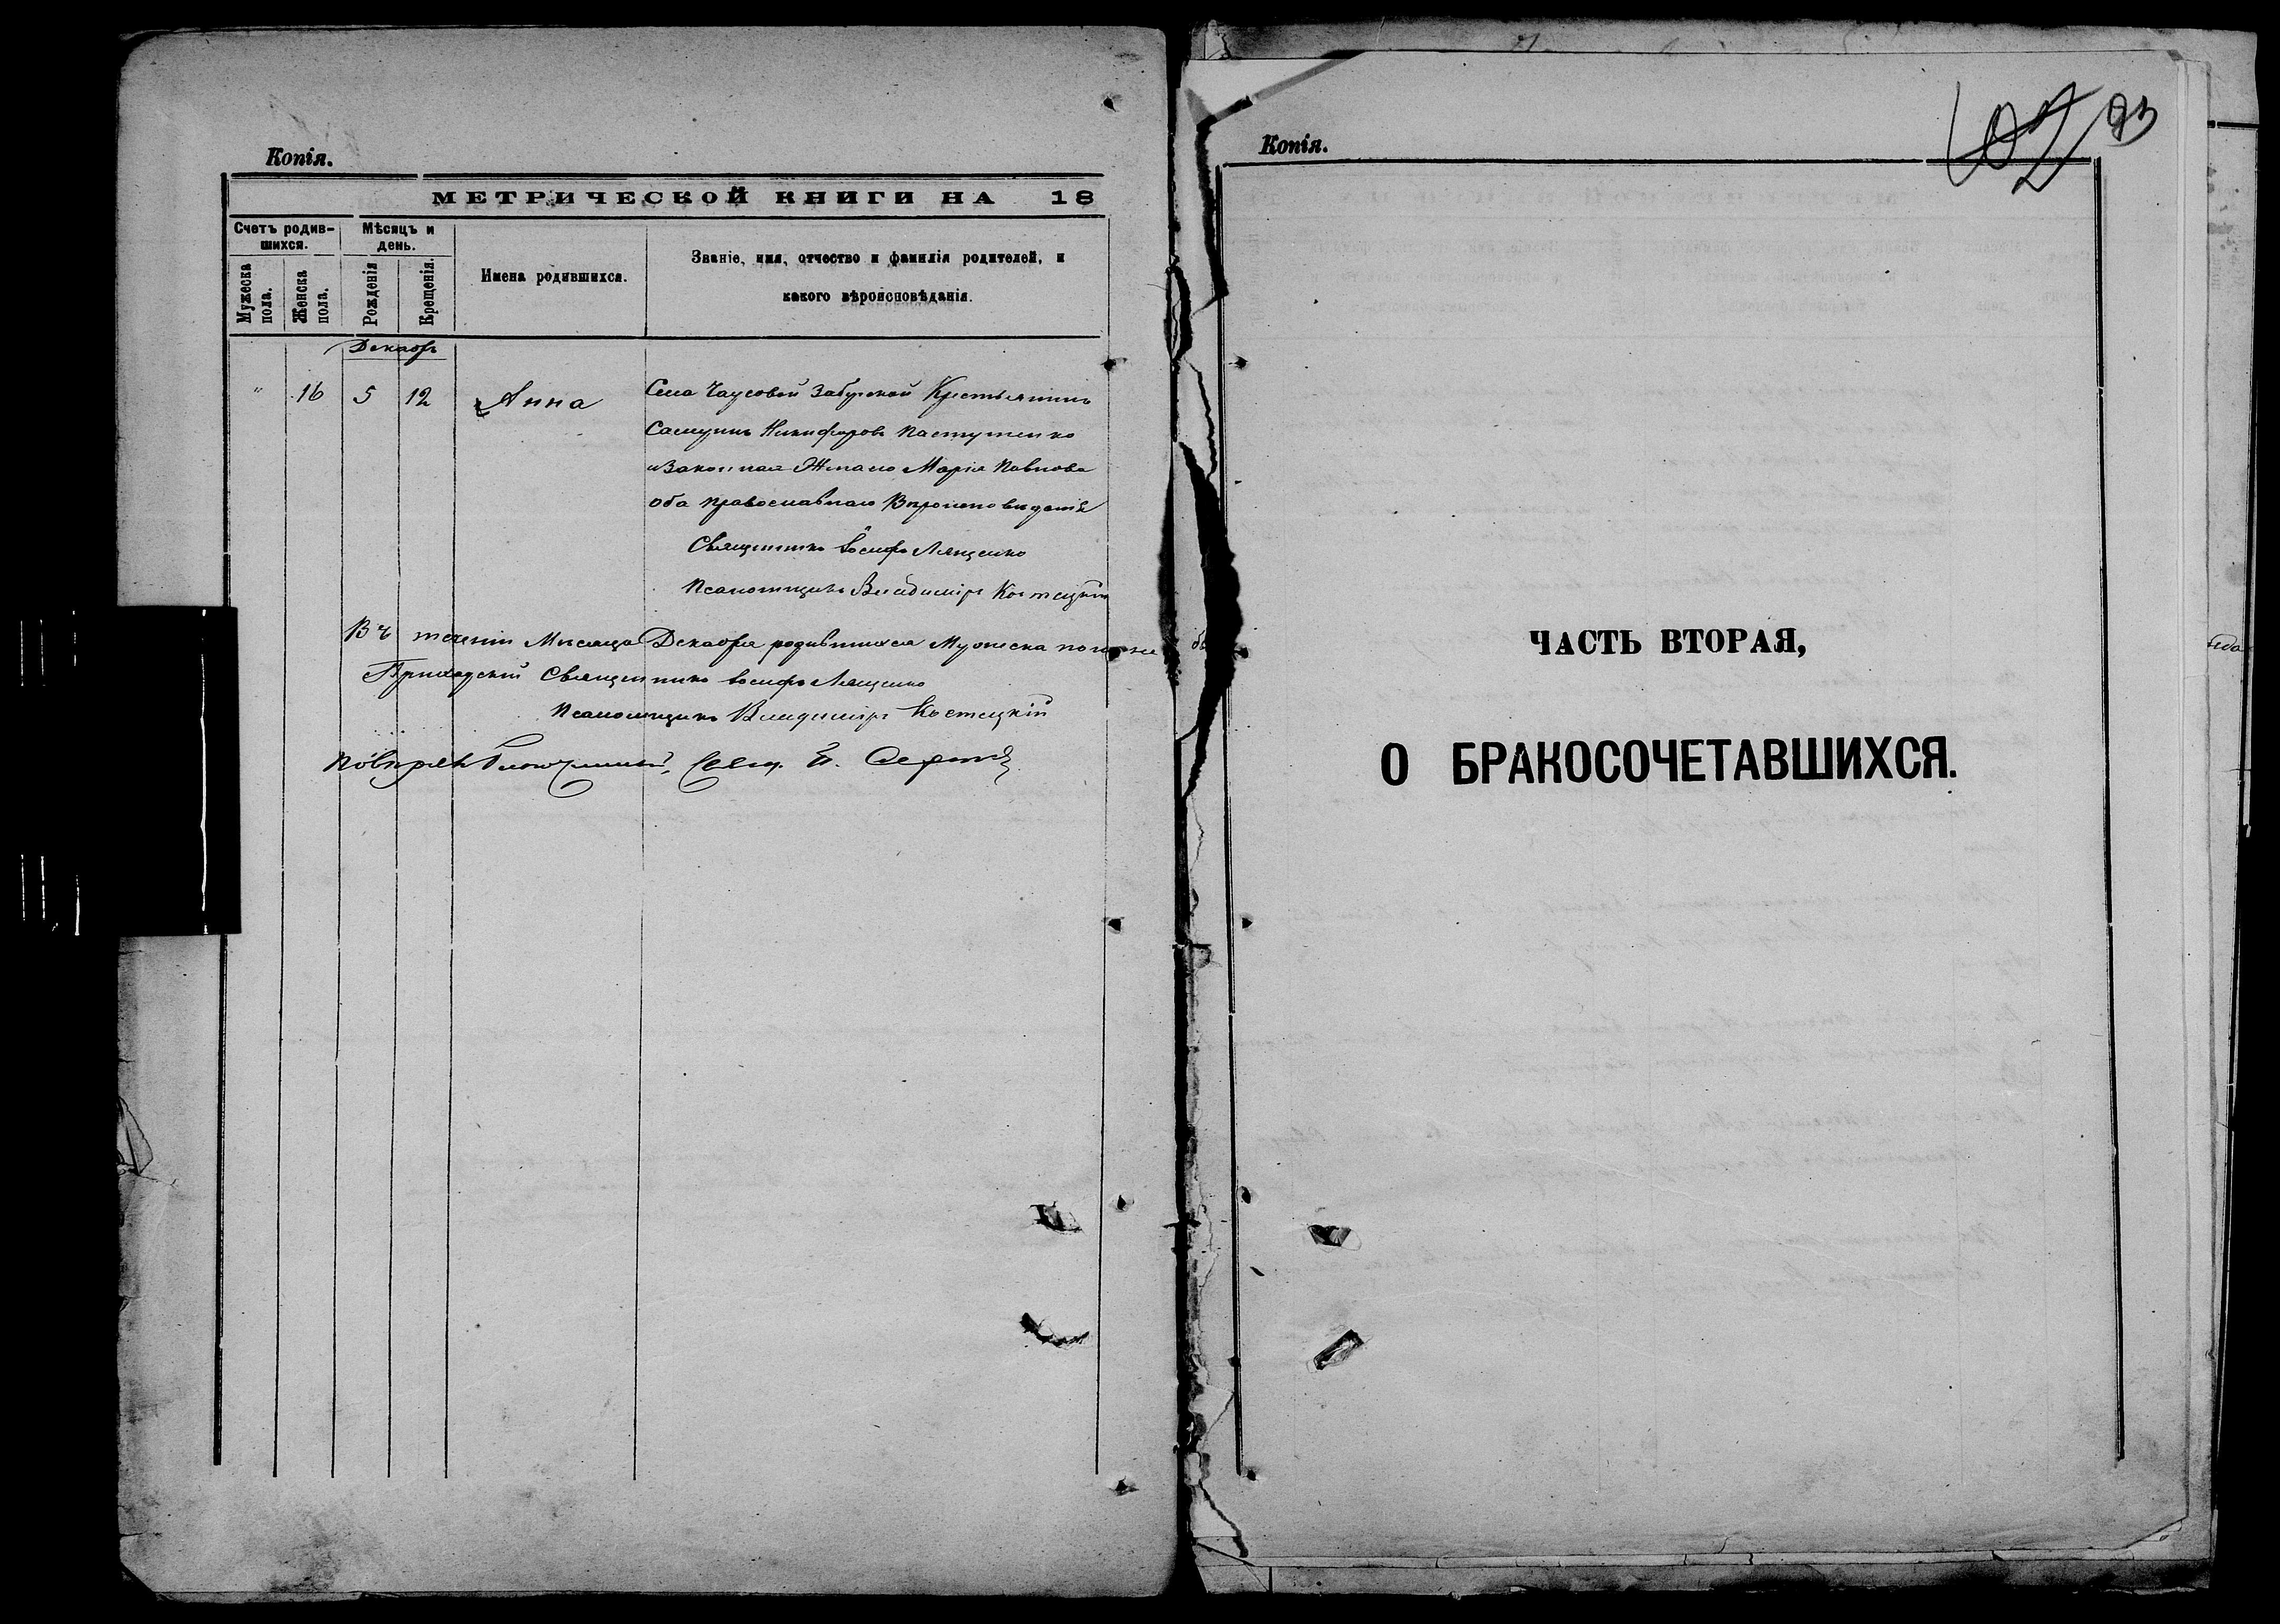 Копія.
МЕТРИЧЕСКОЙ КНИГИ НА 18
Счетъ родив-
шихся.
Мѣсяцъ и
день.
Мужеска
пола.
Женска
пола.
Рожденія
Крещенія.
Имена родившихся.
Званіе, имя, отчество и фамилія родителей, и
какого вѣроисповѣданія.
Декабрь
" 16 5 12 Анна
Села Чаусовой Забугской Крестьянинъ
Самуилъ Никифоровъ Пастушенко
и Законная Жена его Марія Павлова
оба православнаго Вѣроисповѣданія
Священникъ Іосифъ Лященко
Псаломщикъ Владиміръ Костецкій
Въ теченіи Мѣсяца Декабря родившихся Мужеска пола не
Приходскій Священникъ Іосифъ Лященко
Псаломщикъ Владиміръ Костецкій
Свящ.
Копія.
102 93
ЧАСТЬ ВТОРАЯ,
О БРАКОСОЧЕТАВШИХСЯ.